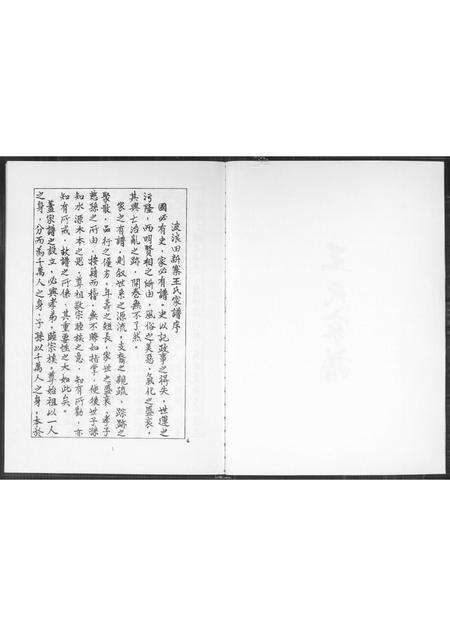 波浪田新寨王氏家譜序
國必有史，家必有譜，史以記政事之得失，世運之
污隆，而明賢相之所由，風俗之美惡，氣化之盛衰，
其興亡治亂之跡，開卷無不了然。
家之有譜，則叙世系之源流，支裔之親疏，踪跡之
聚散，品行之優劣，年壽之短長，家世之盛衰，孝子
慈孫之所由，按籍而稽，無不瞭如指掌，使後世子孫
知水源木本之思，尊祖敬宗睦族之意，知有所勸，亦
知有所戒，故譜之所係，其重要性之大如此矣。
蓋宗譜之設立，必興孝弟，顯宗族，尊始祖以一人
之身，分而為千萬人之身，子孫以千萬人之身，本於
1